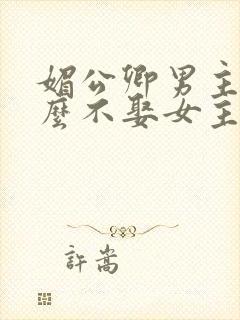 媚公卿男主
麼不娶女主
許嵩